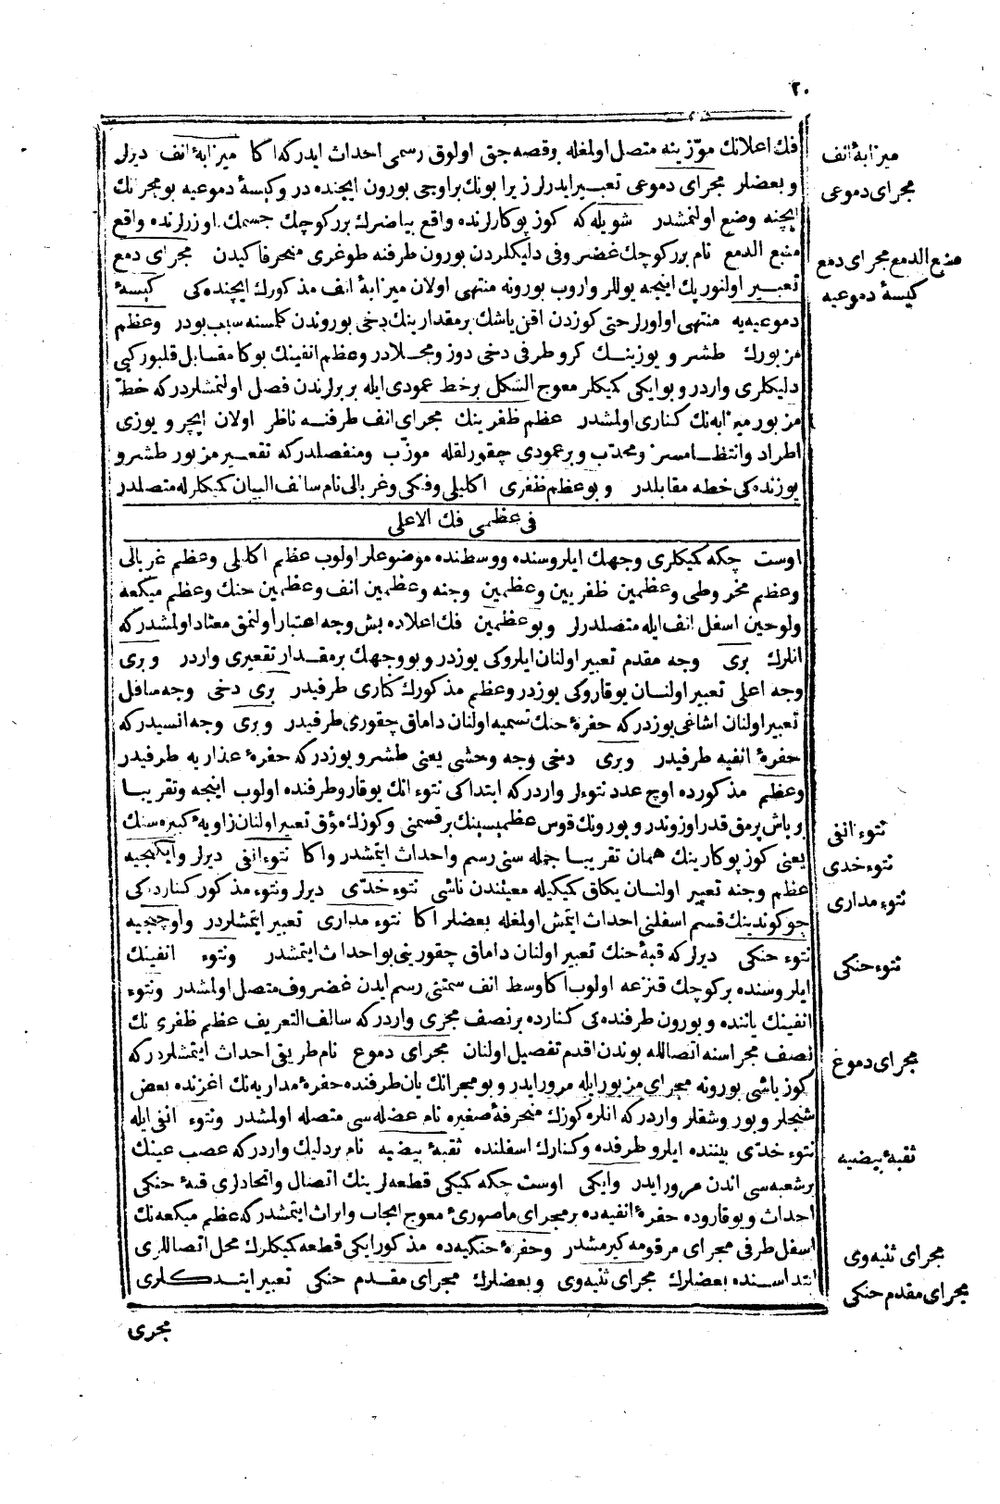 ٢٠
فك اعلانك موّزينه متصل اولمغله برقصه جق اولوق رسمى احداث ايدر كه اكا ميزابۀ انف ديرلر
و بعضلر مجراى دموعى تعبير ايدرلر زيرا بونك براوجى بورون ايچنده در و كيسۀ دموعيه بو مجرانك
ايچنه وضع اولنمشدر شويله كه كوز پوكارلرنده واقع بياضرك بر كوچك جسمك اوزرلرنده واقع
منبع الدمع نام بر كوچك غضروفى دليكلردن بورون طرفنه طوغرى منحرفا كيدن مجراى دمع
تعبير اولنور پك اينجه يوللر واروب بورونه منتهى اولان ميزابۀ انف مذكورك ايچنده كى كيسۀ
دموعيه يه منتهى اولورلر حتى كوزدن اقن ياشك بر مقدارينك دخى بوروندن كلمسنه سبب بودر وعظم
مزبورك طشر و يوزينك كرو طرفى دخى دوز و مجلادر وعظم انفينك بوكا مقابل قلبور كبى
دليكلرى واردر و بو ايكى كميكلر معوج الشكل بر خط عمودى ايله بربرلرندن فصل اولنمشلردر كه خط
مزبور ميزابه نك كنارى اولمشدر عظم ظفرينك مجراى انف طرفنه ناظر اولان ايچرو يوزى
اطراد وانتظامسز ومحدّب و بر عمودى چقورلقله موزّب ومنفصلدر كه تقعير مزبور طشرو
يوزنده كى خطه مقابلدر و بو عظم ظفرى اكليلى وفكى وغربالى نام سالف البيان كميكلرله متصلدر
فى عظمى فك الاعلى
اوست چكه كميكلرى وجهك ايلروسنده ووسطنده موضوعلر اولوب عظم اكليلى وعظم غربالى
وعظم مخروطى وعظمين ظفريين وعظمين وجنه وعظمين انف وعظمين حنك وعظم ميكعه
ولوحين اسفل انف ايله متصلدرلر و بو عظمين فك اعلاده بش وجه اعتبار اولنمق معتاد اولمشدر كه
انلرك برى وجه مقدم تعبير اولنان ايلروكى يوزدر و بو وجهك بر مقدار تقعيرى واردر و برى
وجه اعلى تعبير اولنان يوقاروكى يوزدر وعظم مذكورك كنارى طرفيدر برى دخى وجه سافل
تعبير اولنان اشاغى يوزدر كه حفرۀ حنك تسميه اولنان داماق چقورى طرفيدر و برى وجه انسيدر كه
حفرۀ انفيه طرفيدر و برى دخى وجه وحشى يعنى طشرو يوزدر كه حفرۀ عذاريه طرفيدر
وعظم مذكورده اوچ عدد نتوءلر واردر كه ابتداكى نتوء انك يوقارو طرفنده اولوب اينجه وتقريبا
بر باش پرمق قدر اوزوندر و بورونك قوس عظميسينك بر قسمنى و كوزك مؤق تعبير اولنان زاويۀ كبيره سنك
يعنى كوز پوكارينك همان تقريبا جمله سنى رسم واحداث ايتمشدر واكا نتوء انفى ديرلر وايكنجيه
عظم وجنه تعبير اولنان يكاق كميكيله معيتندن ناشى نتوء خدّى ديرلر ونتوء مذكور كنارده كى
چوكوندينك قسم اسفلنى احداث ايتمش اولمغله بعضلر اكا نتوء مدارى تعبير ايتمشلردر واوچنجيه
نتوء حنكى ديرلر كه قبۀ حنك تعبير اولنان داماق چقورينى بو احداث ايتمشدر ونتوء انفينك
ايلروسنده بر كوچك قنزعه اولوب اكا وسط انف سمتنى رسم ايدن غضروف متصل اولمشدر ونتوء
انفينك ياننده و بورون طرفنده كى كنارده بر نصف مجرى واردر كه سالف التعريف عظم ظفرى نك
نصف مجراسنه اتصالله بوندن اقدم تفصيل اولنان مجراى دموع نام طريقى احداث ايتمشلردر كه
كوز ياشى بورونه مجراى مزبور ايله مرور ايدر و بو مجرانك يان طرفنده حفرۀ مداريه نك اغزنده بعض
شنجلر و بور وشقلر واردر كه انلره كوزك منحرفۀ صغيره نام عضله سى متصله اولمشدر ونتوء انفى ايله
نتوء خدّى بيننده ايلرو طرفده و كنارك اسفلنده ثقبۀ بيضيه نام بر دليك واردر كه عصب عينك
بر شعبه سى اندن مرور ايدر وايكى اوست چكه كميكى قطعه لرينك اتصال واتحادلرى قبۀ حنكى
احداث و يوقاروده حفرۀ انفيه ده بر مجراى ماصورئ معوج ايجاب وايراث ايتمشدر كه عظم ميكعه نك
اسفل طرفى مجراى مرقومه كيرمشدر وحفرۀ حنكيه ده مذكور ايكى قطعه كميكلرك محل اتصاللرى
ابتداسنده بعضلرك مجراى ثنيه وى و بعضلرك مجراى مقدم حنكى تعبير ايتدكلرى
مجرى
ميزابۀ انف
مجراى دموعى
منبع الدمع مجراى دمع
كيسۀ دموعيه
نتوء انفى
نتوء خدى
نتوء مدارى
نتوء حنكى
مجراى دموغ
ثقبۀ بيضيه
مجراى ثنيه وى
مجراى مقدم حنكى